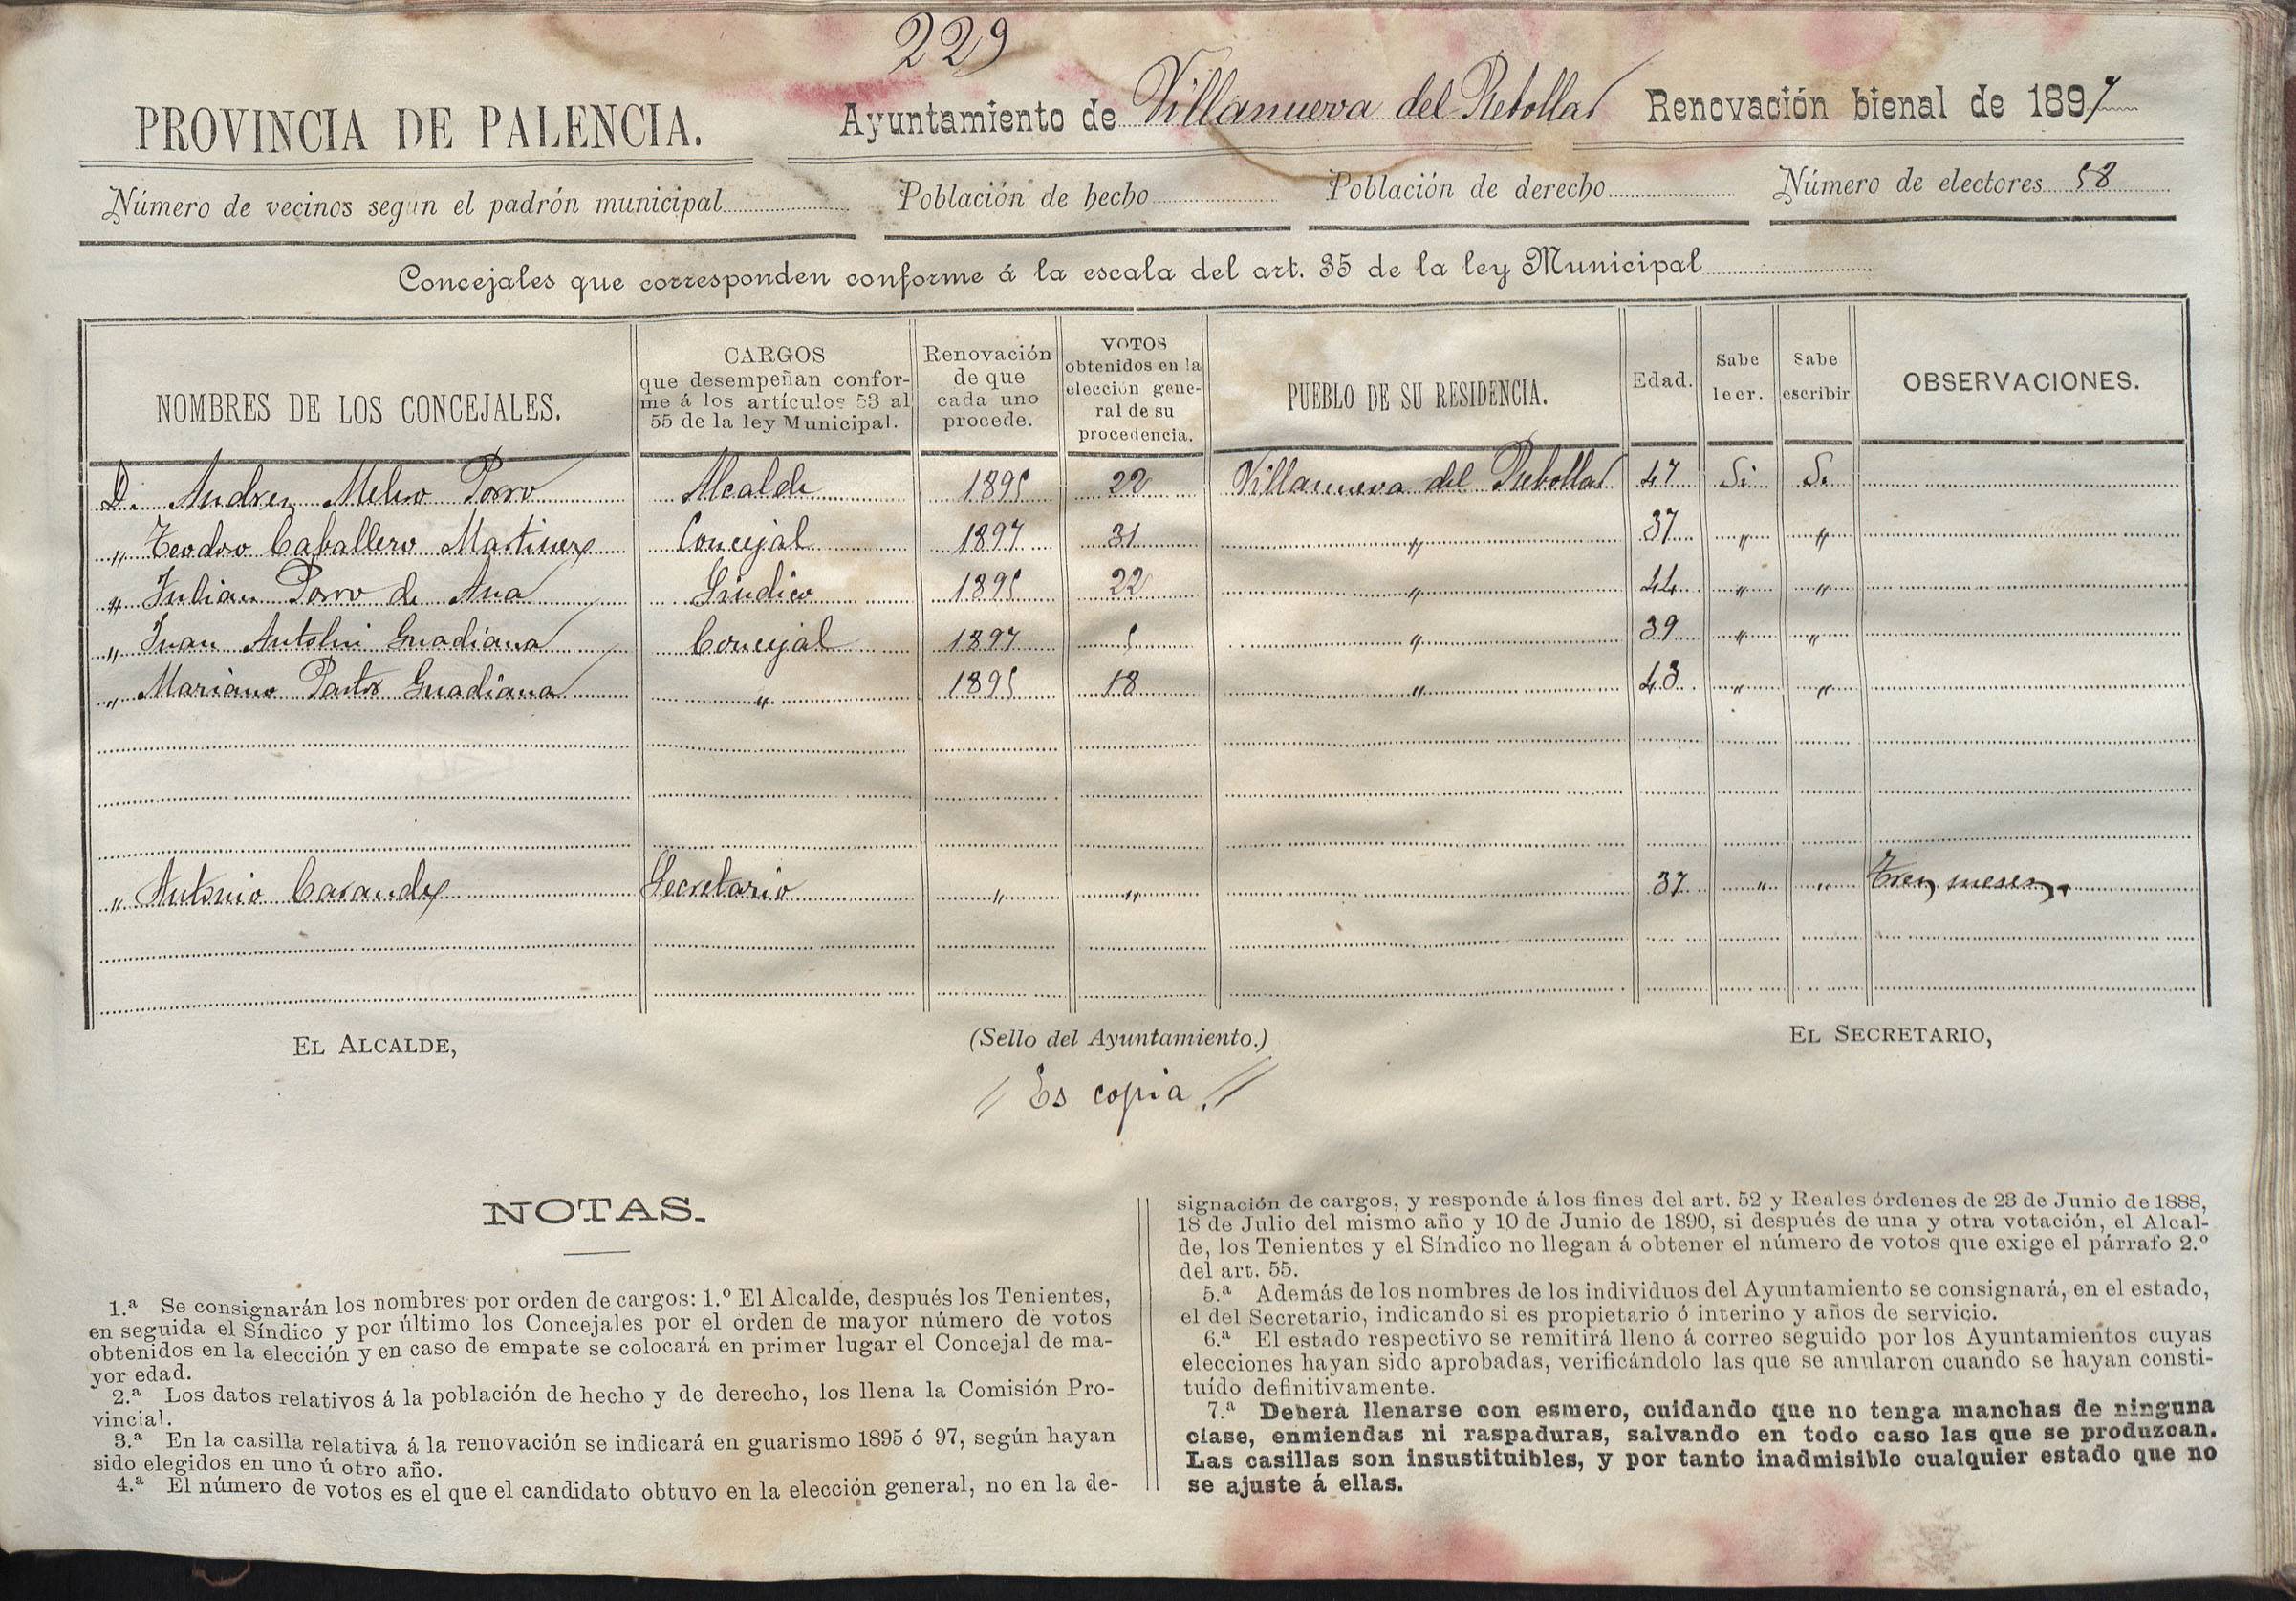 229
PROVINCIA DE PALENCIA. Ayuntamiento de Villanueva del Rebollar Renovación bienal de 1897
Número de vecinos según el padrón municipal Población de hecho Población de derecho Número de electores 58
Concejales que corresponden conforme á la escala del art. 35 de la ley Municipal
NOMBRES DE LOS CONCEJALES.
CARGOS
que desempeñan confor-
me á los artículos 53 al
55 de la ley Municipal.
Renovación
de que
cada uno
procede.
VOTOS
obtenidos en la
elección gene-
ral de su
procedencia.
PUEBLO DE SU RESIDENCIA.
Edad.
Sabe
leer.
Sabe
escribir
OBSERVACIONES.
D. Andres Melero Porro Alcalde 1895 22 Villanueva del Rebollar 47 Si Si
" Teodoro Caballero Martinez Concejal 1897 31 " 37 " "
" Julian Porro de Ana Síndico 1895 22 " 44 " "
" Juan Antolin Guadiana Concejal 1897 5 " 39 " "
" Mariano Pastor Guadiana " 1895 18 " 43 " "
" Antonio Carande Secretario " " 37 " " Tres meses.
EL ALCALDE, (Sello del Ayuntamiento.) EL SECRETARIO,
// Es copia. //
NOTAS.
1.ª Se consignarán los nombres por orden de cargos: 1.º El Alcalde, después los Tenientes,
en seguida el Síndico y por último los Concejales por el orden de mayor número de votos
obtenidos en la elección y en caso de empate se colocará en primer lugar el Concejal de ma-
yor edad.
2.ª Los datos relativos á la población de hecho y de derecho, los llena la Comisión Pro-
vincial.
3.ª En la casilla relativa á la renovación se indicará en guarismo 1895 ó 97, según hayan
sido elegidos en uno ú otro año.
4.ª El número de votos es el que el candidato obtuvo en la elección general, no en la de-
signación de cargos, y responde á los fines del art. 52 y Reales órdenes de 23 de Junio de 1888,
18 de Julio del mismo año y 10 de Junio de 1890, si después de una y otra votación, el Alcal-
de, los Tenientes y el Síndico no llegan á obtener el número de votos que exige el párrafo 2.º
del art. 55.
5.ª Además de los nombres de los individuos del Ayuntamiento se consignará, en el estado,
el del Secretario, indicando si es propietario ó interino y años de servicio.
6.ª El estado respectivo se remitirá lleno á correo seguido por los Ayuntamientos cuyas
elecciones hayan sido aprobadas, verificándolo las que se anularon cuando se hayan consti-
tuído definitivamente.
7.ª Deberá llenarse con esmero, cuidando que no tenga manchas de ninguna
clase, enmiendas ni raspaduras, salvando en todo caso las que se produzcan.
Las casillas son insustituibles, y por tanto inadmisible cualquier estado que no
se ajuste á ellas.